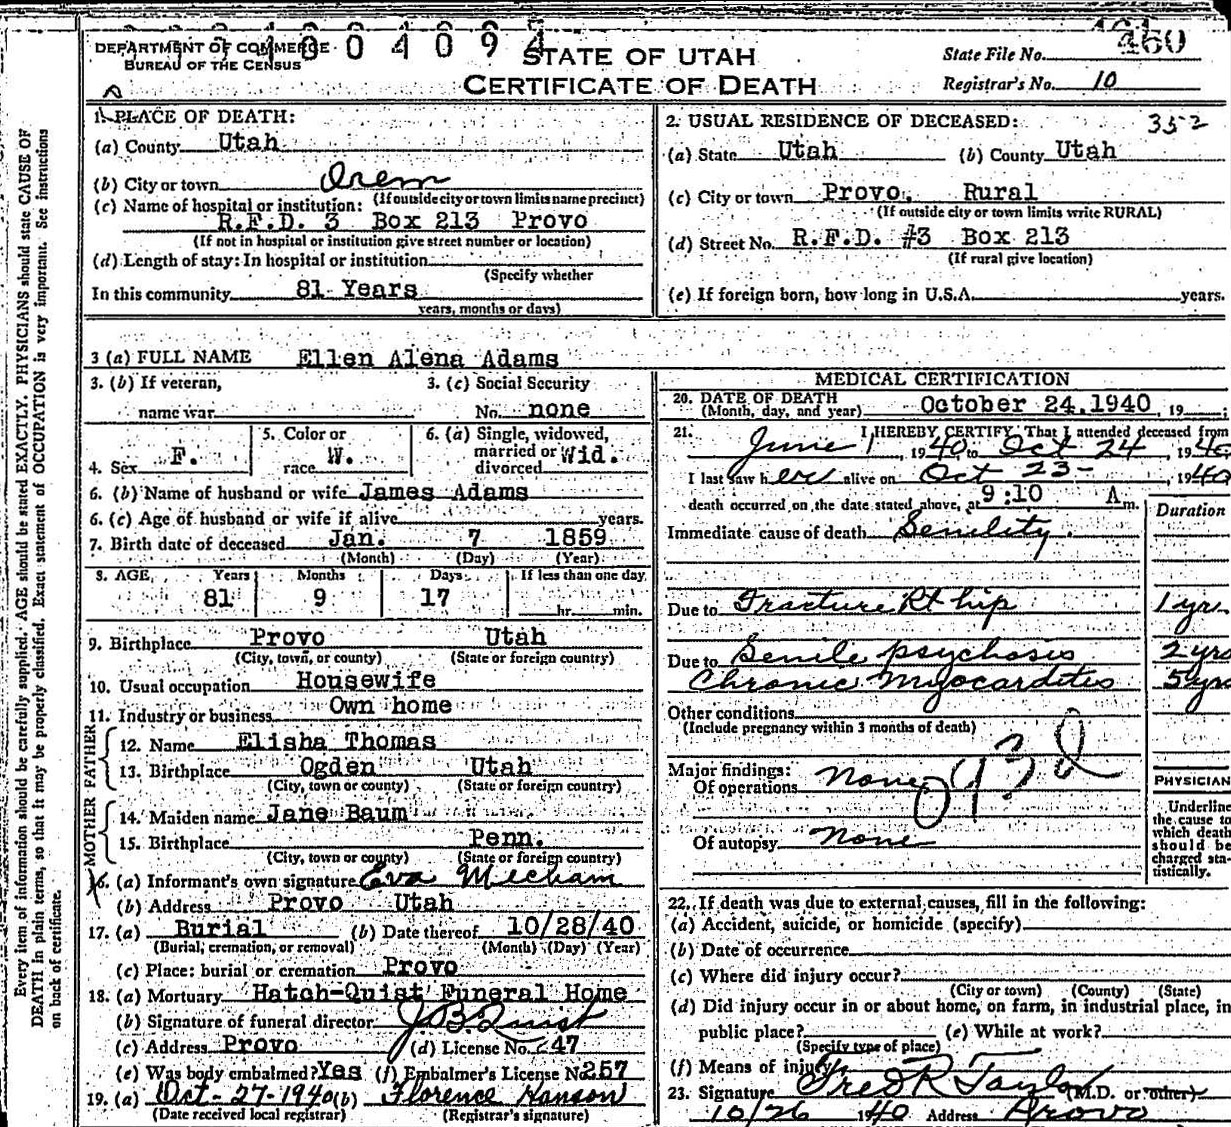 DEPARTMENT OF COMMERCE
BUREAU OF THE CENSUS
STATE OF UTAH
CERTIFICATE OF DEATH
State File No. 460
Registrar's No. 10
Every item of information should be carefully supplied. AGE should be stated EXACTLY. PHYSICIANS should state CAUSE OF
DEATH in plain terms, so that it may be properly classified. Exact statement of OCCUPATION is very important. See instructions
on back of certificate.
1. PLACE OF DEATH:
(a) County Utah
(b) City or town Orem
(If outside city or town limits name precinct)
(c) Name of hospital or institution:
R.F.D. 3 Box 213 Provo
(If not in hospital or institution give street number or location)
(d) Length of stay: In hospital or institution
(Specify whether
In this community 81 Years
years, months or days)
2. USUAL RESIDENCE OF DECEASED: 352
(a) State Utah (b) County Utah
(c) City or town Provo, Rural
(If outside city or town limits write RURAL)
(d) Street No. R.F.D. #3 Box 213
(If rural give location)
(e) If foreign born, how long in U.S.A. years.
3 (a) FULL NAME Ellen Alena Adams
3. (b) If veteran,
name war
3. (c) Social Security
No. none
4. Sex F.
5. Color or
race W.
6. (a) Single, widowed,
married or
divorced Wid.
6. (b) Name of husband or wife James Adams
6. (c) Age of husband or wife if alive years.
7. Birth date of deceased Jan. 7 1859
(Month) (Day) (Year)
8. AGE Years Months Days If less than one day
81 9 17 hr. min.
9. Birthplace Provo Utah
(City, town, or county) (State or foreign country)
10. Usual occupation Housewife
11. Industry or business Own home
FATHER
12. Name Elisha Thomas
13. Birthplace Ogden Utah
(City, town or county) (State or foreign country)
MOTHER
14. Maiden name Jane Baum
15. Birthplace Penn.
(City, town or county) (State or foreign country)
16. (a) Informant's own signature Eva Mecham
(b) Address Provo Utah
17. (a) Burial (b) Date thereof 10/28/40
(Burial, cremation, or removal) (Month) (Day) (Year)
(c) Place: burial or cremation Provo
18. (a) Mortuary Hatch-Quist Funeral Home
(b) Signature of funeral director J.B. Quist
(c) Address Provo (d) License No. 47
(e) Was body embalmed? Yes (f) Embalmer's License No. 257
19. (a) Oct-27-1940 (b) Florence Hanson
(Date received local registrar) (Registrar's signature)
MEDICAL CERTIFICATION
20. DATE OF DEATH
(Month, day, and year) October 24.1940, 19
21. I HEREBY CERTIFY, That I attended deceased from
June 1, 1940 to Oct 24, 1940
I last saw her alive on Oct 23-, 1940
death occurred on the date stated above, at 9:10 A m.
Duration
Immediate cause of death Senility.
Due to Fracture Rt hip 1 yr.
Due to Senile psychosis 2 yrs
Chronic Myocarditis 5 yrs
Other conditions
(Include pregnancy within 3 months of death)
Major findings:
Of operations none
Of autopsy None
PHYSICIAN
Underline
the cause to
which death
should be
charged sta-
tistically.
22. If death was due to external causes, fill in the following:
(a) Accident, suicide, or homicide (specify)
(b) Date of occurrence
(c) Where did injury occur?
(City or town) (County) (State)
(d) Did injury occur in or about home, on farm, in industrial place, in
public place? (e) While at work?
(Specify type of place)
(f) Means of injury
23. Signature Fred R Taylor (M.D. or other)
10/26 1940 Address Provo